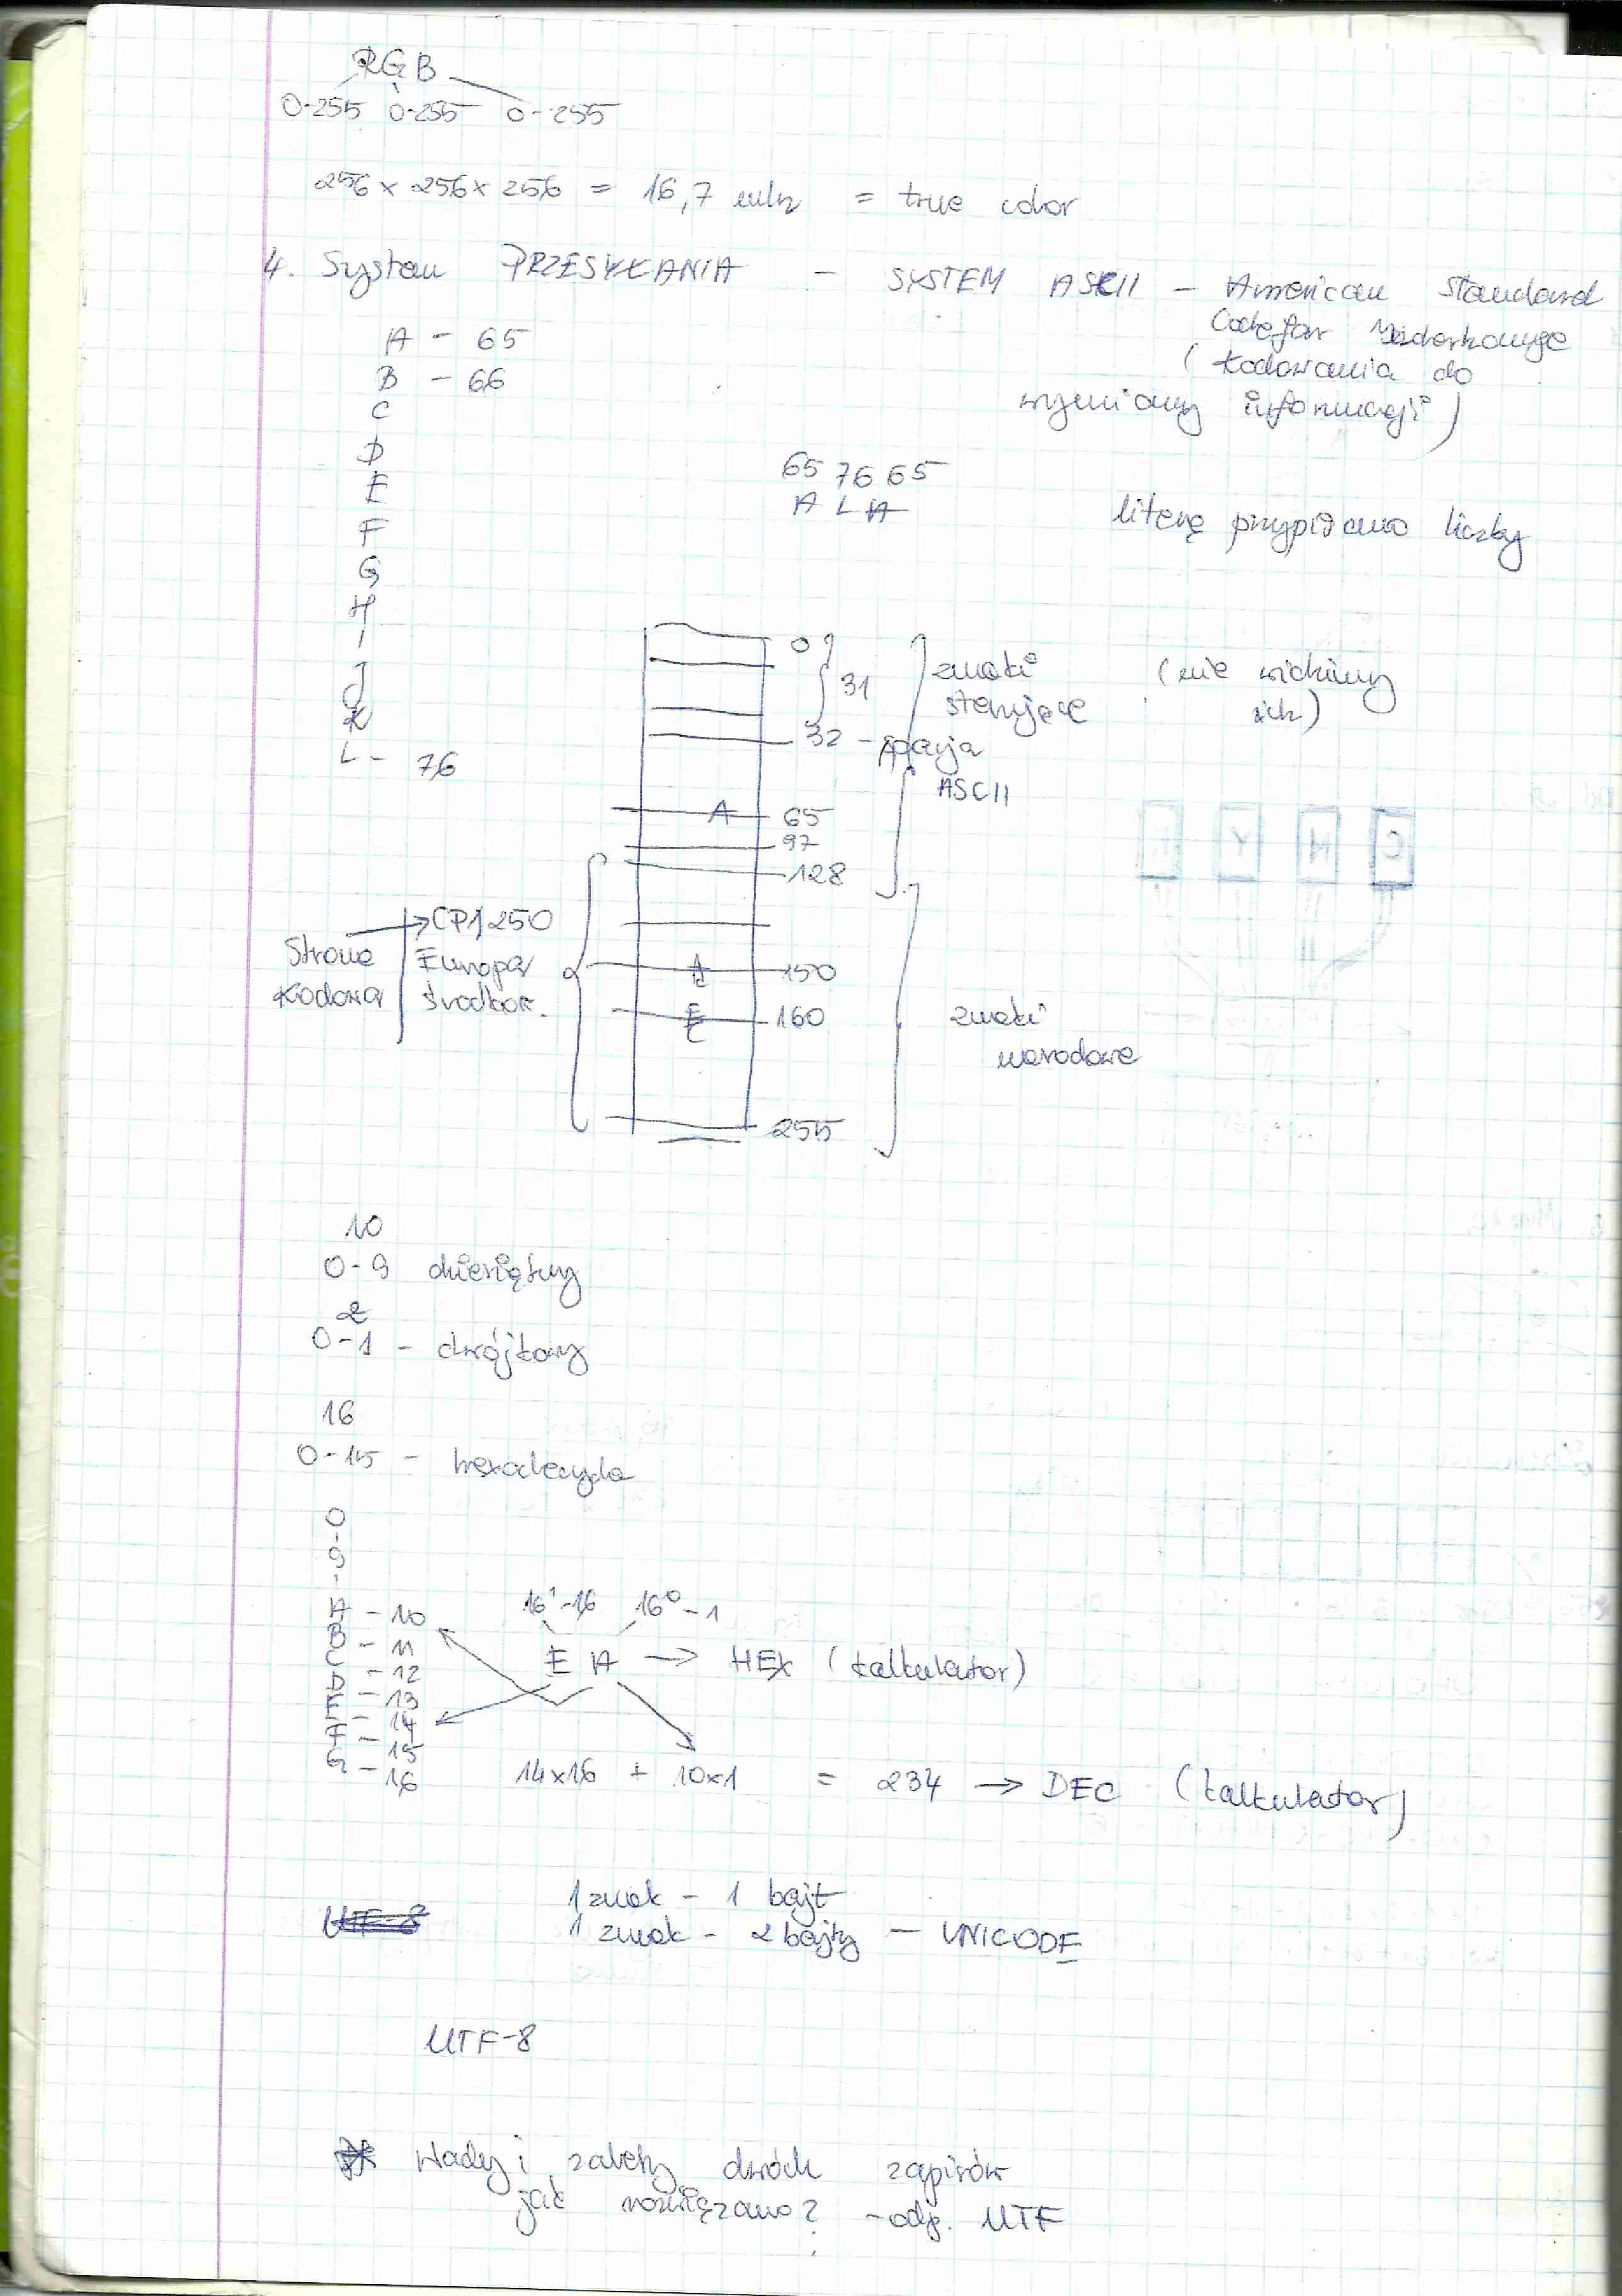 RGB
0-255 0-255 0-255
256 x 256 x 256 = 16,7 mln = true color
4. System PRZESYŁANIA - SYSTEM ASCII - American Standard
Code for
(kodowania do
wymiany informacji)
A - 65
B - 66
C
D
E
F
G
H
I
J
K
L - 76
65 76 65
A L A
literę przypisano liczby
0
31
znaki
sterujące
(nie widzimy
ich)
32 - spacja
ASCII
A 65
97
128
Strona
kodowa
CP1250
Europa
środkow.
Ą 150
Ę 160
znaki
narodowe
255
10
0-9 dziesiętny
2
0-1 - dwójkowy
16
0-15 - hexadecyda
0
-
9
-
A - 10
B - 11
C - 12
D - 13
E - 14
F - 15
G - 16
16¹-16 16⁰-1
E A → HEX (kalkulator)
14x16 + 10x1 = 234 → DEC (kalkulator)
UTF-8
1 znak - 1 bajt
1 znak - 2 bajty - UNICODE
UTF-8
Wady i zalety dwóch zapisów
jak rozwiązano? - odp. UTF